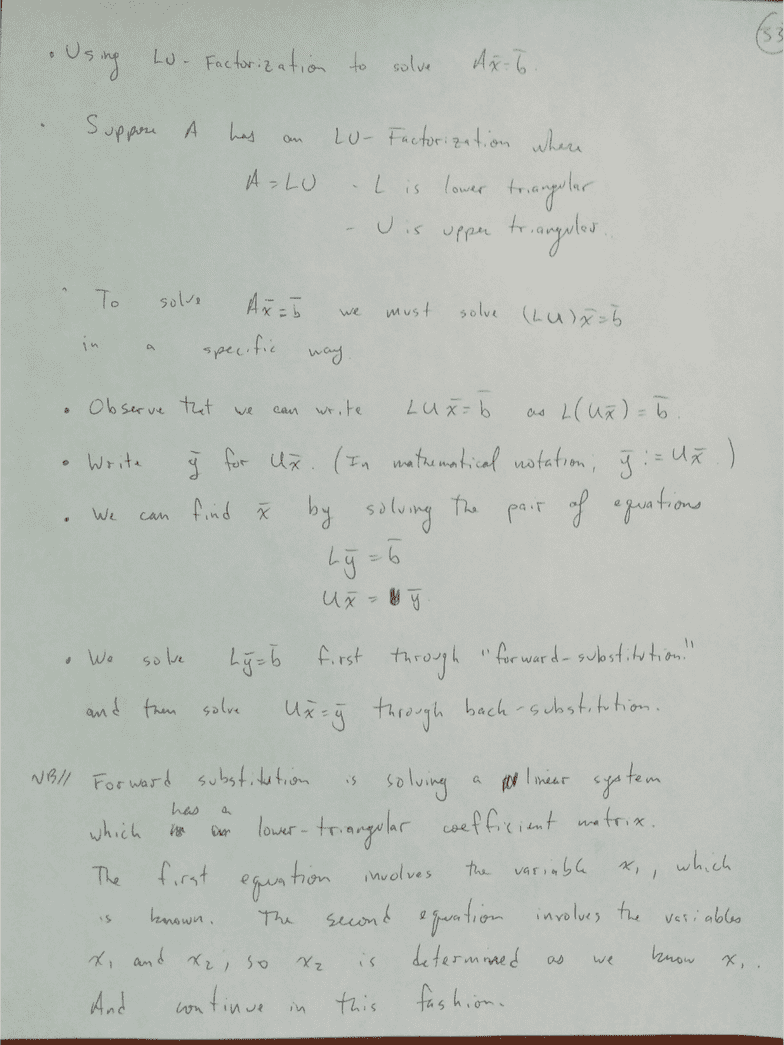 53
• Using LU-Factorization to solve Ax̄=b̄.
• Suppose A has an LU-Factorization where
A=LU - L is lower triangular
- U is upper triangular.
• To solve Ax̄=b̄ we must solve (LU)x̄=b̄
in a specific way.
• Observe that we can write LUx̄=b̄ as L(Ux̄)=b̄.
• Write ȳ for Ux̄. (In mathematical notation, ȳ:=Ux̄.)
• We can find x̄ by solving the pair of equations
Lȳ=b̄
Ux̄=ȳ.
• We solve Lȳ=b̄ first through "forward-substitution."
and then solve Ux̄=ȳ through back-substitution.
NB// Forward substitution is solving a linear system
which has a lower-triangular coefficient matrix.
The first equation involves the variable x₁, which
is known. The second equation involves the variables
x₁ and x₂, so x₂ is determined as we know x₁.
And continue in this fashion.